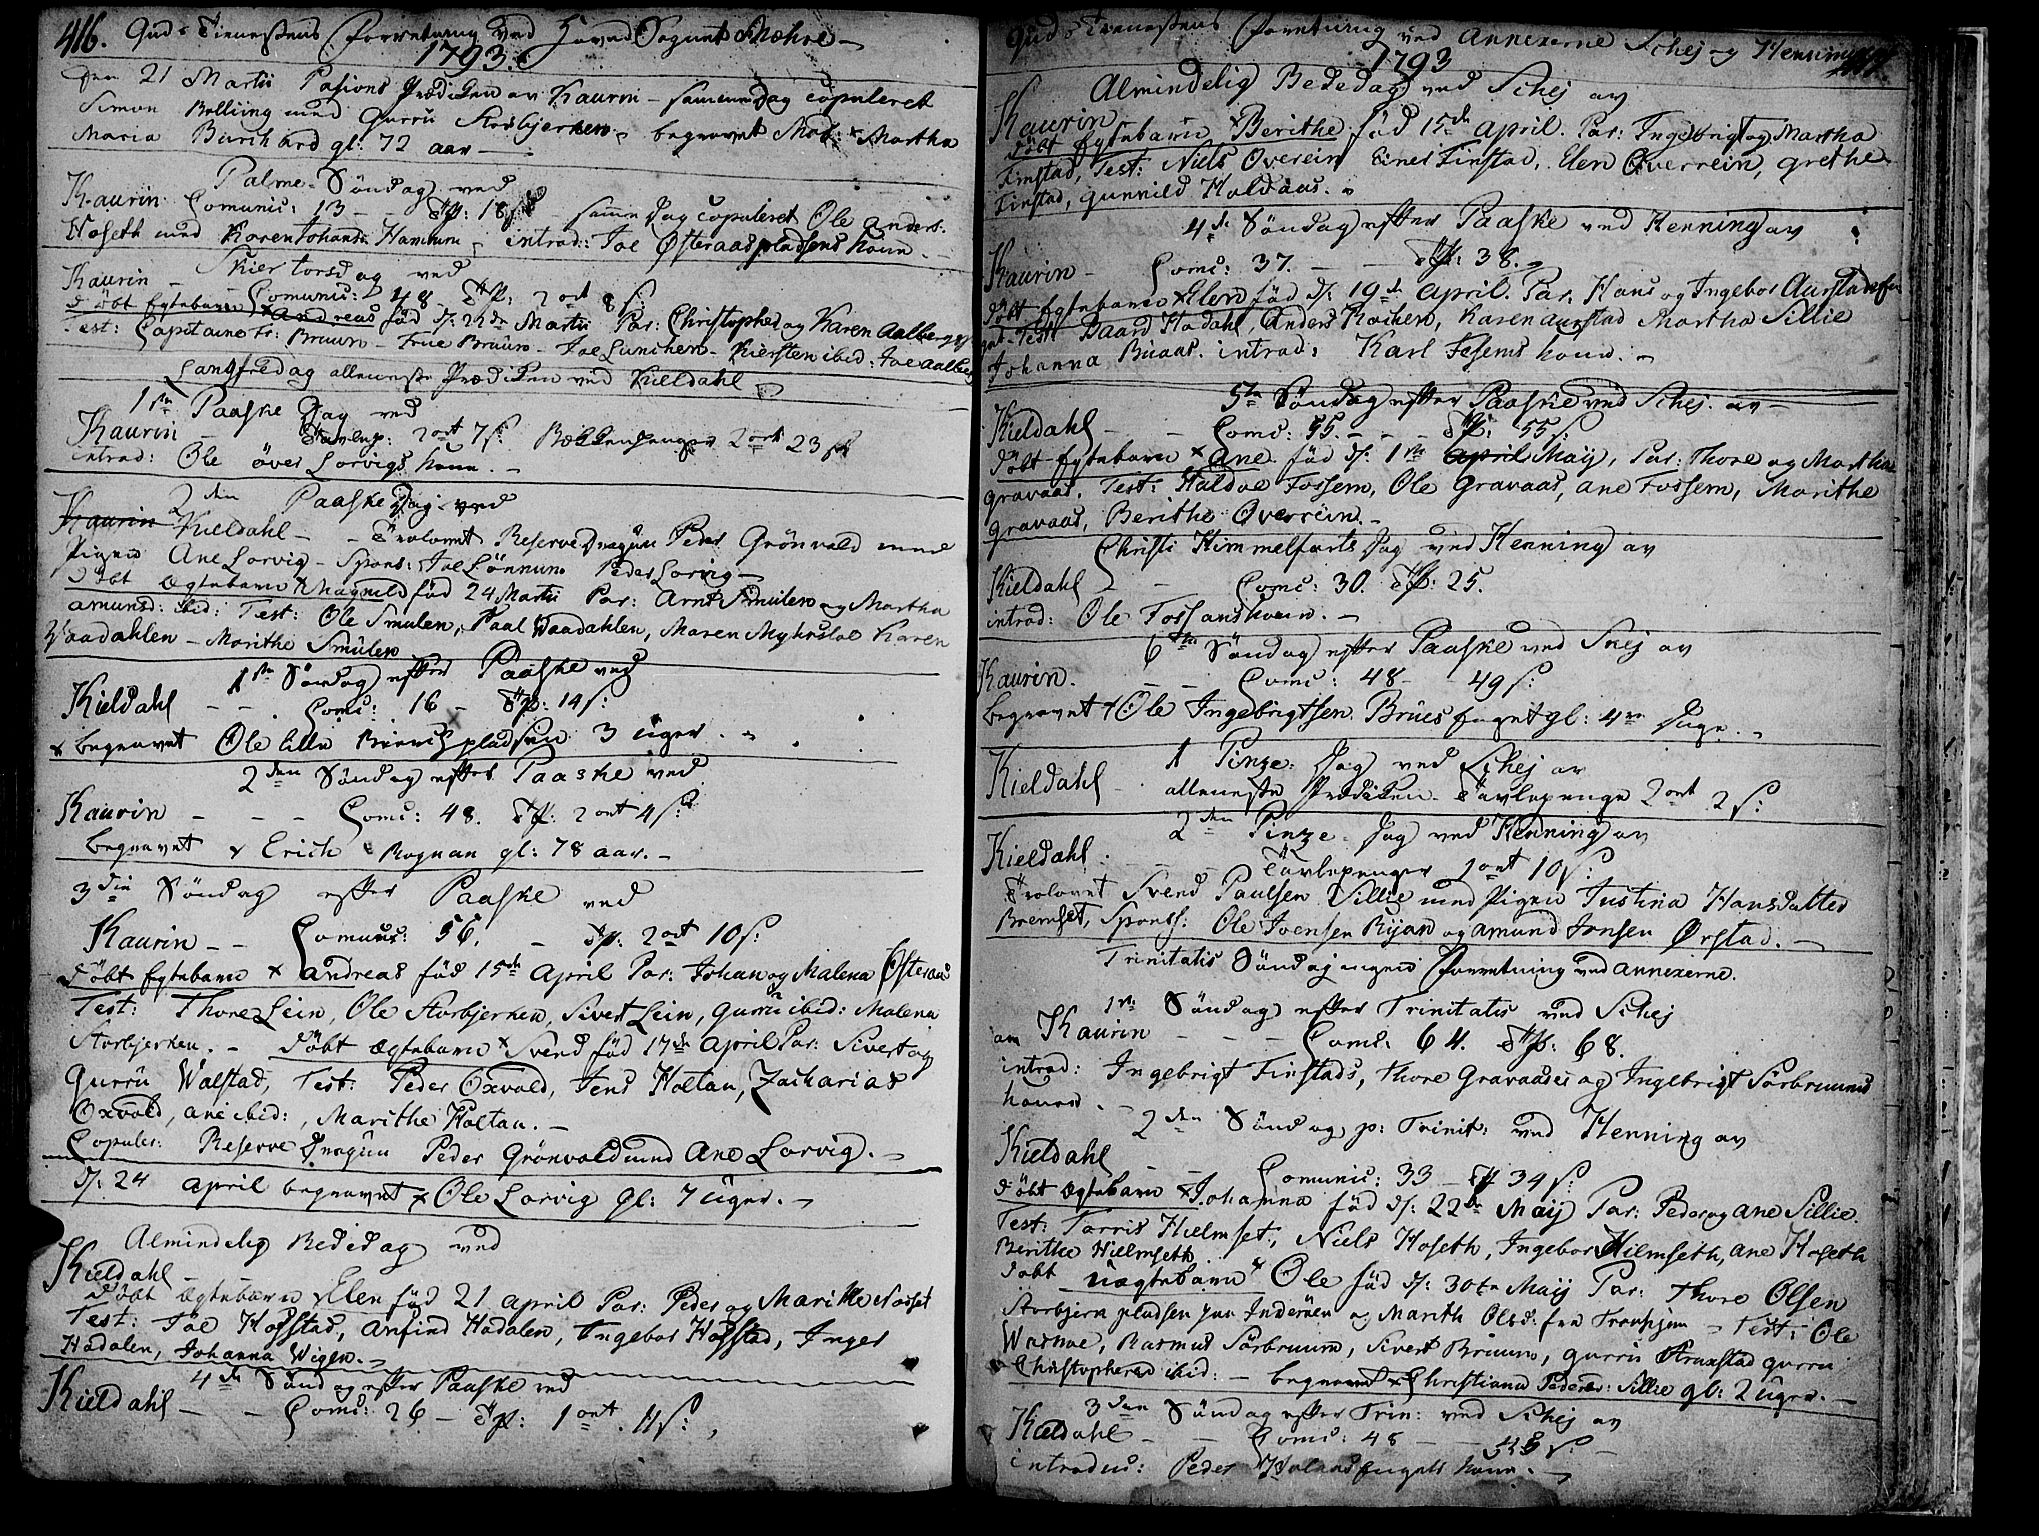 416. Guds Tienestens Forretning ved Hoved Sognet Mæhre
1793.
den 21 Martii Pasions Prædiken av Kaurin - samme dag copuleret
Simon Bolling med Gurru Storbjerken - begravet Mad: x Martha
Maria Burchard gl: 72 aar
Palme Søndag ved
Kaurin Comunic: 13 - Off: 18 - samme dag copuleret Ole Anders:
Hoseth med Karen Johansd: Hammer, introd: Joe Østeraaspladsens kone.
Skiertorsdag ved
Kaurin - Comunic: 48 Off: 2 ort 8 s:
døbt Egtebarn x Andreas fød d: 22de Martii Par: Christopher og Karen Aalberg
Test: Capitaine Fr: Bruun - Frue Bruun - Joe Lunchen - Kiersten ibid: Joe Aalberg
Langfredag alleneste Prædiken ved Kieldahl
1ste Paaske Dag ved
Kaurin - Tavlep: 2 ort 7 s: Bækkenpenger 2 ort 23 s
introd: Ole över Lorvigs kone.
2den Paaske Dag ved
Kaurin Kieldahl - Trolovet Reserve Dragun Peder Grönvold med
Pigen Ane Lorvig - Spons: Joe Lönnum Peder Lorvig
Döbt Ægtebarn x Magnild fød 24 Martii Par: Arnt Smulen og Martha
Amunsd: ibid: Test: Ole Smulen, Paal Waadahlen, Maren Myhrsloe Karen
Waadahlen - Marithe Smulen
1ste Søndag efter Paaske ved
Kieldahl - - Comc: 16 - Off: 14 s:
x begravet Ole lille pladsen 3 uger.
2den Søndag efter Paaske ved
Kaurin - - - Comc: 48. Off: 2 ort 4 s:
begravet x Erich Rognan gl: 78 aar.
3die Søndag efter Paaske ved
Kaurin - - Comunic: 56. - Off: 2 ort 10 s:
Döbt Egtebarn x Andreas fød 15de April Par: Johan og Malena Østeraas
Test: Thore Lein, Ole Storbjerken, Sivert Lein, Gurru ibid: Malena
Storbjerken. - döbt Ægtebarn x Svend fød 17de April Par: Sivert og
Gurru Walstad, Test: Peder Oxvold, Jens Holtan, Zacharias
Oxvold, Ane ibid:, Marithe Holtan.
Copuler: Reserve Dragun Peder Grönvold med Ane Lorvig.
d: 24 April begravet x Ole Lorvig gl: 7 uger.
Almindelig Bededag ved
Kieldahl
Döbt Ægtebarn x Elen fød 21 April Par: Peder og Marithe Nosset
Test: Joe Hofstad, Anfind Hadalen, Ingebor Hofstad, Inger
Hadalen, Johanna Wigen.
4de Søndag efter Paaske ved
Kieldahl - - Comc: 26 - Off: 1 ort 11 s:
Guds Tienestens Forretning ved Annexerne Schej og Henning
1793
Almindelig Bededag ved Schej av
Kaurin
döbt Egtebarn x Berithe fød 15de April. Par: Ingebrigt og Martha
Finstad, Test: Niels Overein Einer Finstad, Elen Overrein, Grethe
Finstad, Gunnild Haldaas.
4de Søndag efter Paaske ved Henning av
Kaurin - Comc: 37. - - Off: 38.
döbt Egtebarn x Elen fød d: 19de April. Par: Hans og Ingebor Aurstad
Test: Baard Hadahl, Anders Rochen, Karen Aurstad Martha Sillie
Johanna Buaas. introd: Karl Fesems kone.
5te Søndag efter Paaske ved Schej av
Kieldahl - - Comc: 55. - - Off: 55 s:
döbt Egtebarn x Ane fød d: 1ste April Maij, Par: Thore og Martha
Gravaas, Test: Haldoe Fossem, Ole Gravaas, Ane Fossem, Marithe
Gravaas, Berithe Overrein.
Christi Himmelfarts Dag ved Henning av
Kieldahl - Comc: 30. Off: 25.
introd: Ole Fossans kone.
6te Søndag efter Paaske ved Skej av
Kaurin. - - Comc: 48 - 49 s:
begravet x Ole Ingebrigtsen Brues gl: 4re Dage.
1 Pinze Dag ved Schej av
Kieldahl - alleneste Prædiken - Tavlepenge 2 ort 2 s:
2den Pinze Dag ved Henning av
Kieldahl. - - Tavlepenger 1 ort 10 s:
Trolovet Svend Paulsen Sillie med Pigen Justina Hansdatter
Bremset, Sponss: Ole Joensen Ryan og Amund Jonsen Ørstad.
Trinitatis Søndag ingen Forretning ved Annexerne.
1ste Søndag efter Trinitatis ved Schej
am Kaurin - - - Comc: 64. Off: 68.
introd: Ingebrigt Finstads, Thore Gravaases og Ingebrigt Sörbruuns
koner.
2den Søndag p: Trinit: ved Henning av
Kieldahl - - Comunic: 33 - Off 34 s:
döbt Ægtebarn x Johanna fød d: 22de Maij Par: Peder og Ane Sillie.
Test: Torris Hielmset, Niels Hoseth, Ingebor Hilmseth, Ane Hoseth
Berithe Hielmseth.
döbt Uægtebarn x Ole fød d: 30te Maij Par: Thore Olsen
Storbjern pladsen paa Inderøen og Marith Olsd: fra Tronhjem - Test: Ole
Warhoe, Rasmus Sörbruun, Sivert Bruun, Gurru Gurru
Christophersd ibid: - begravet x Christiana Pedersd: Sillie gl: 2 uger.
3den Søndag efter Trin: ved Schej av
Kieldahl - - Comc: 48 - - s:
introdus: Peder kone.